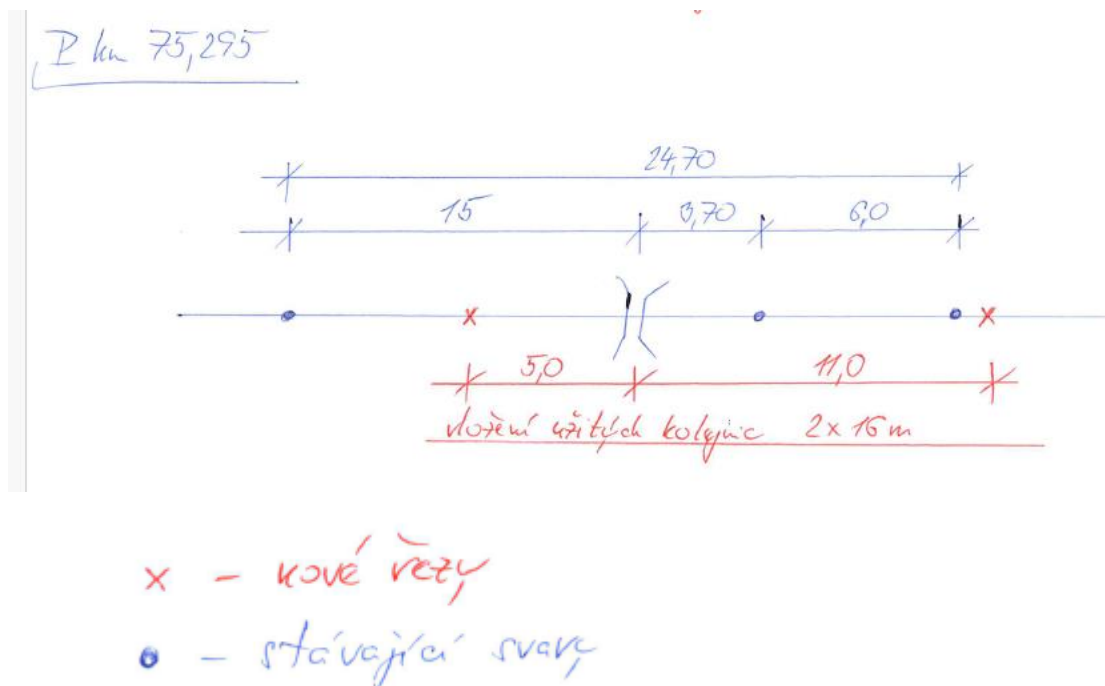 P km 75,295
24,70
15 3,70 6,0
x x
5,0 11,0
vložení užitých kolejnic 2x16m
x - nové řezy
- stávající svary